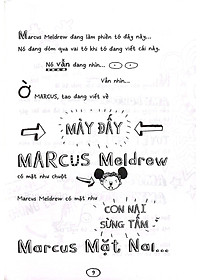 Marcus Meldrew đang làm phiền tớ đây này...
Nó đang dòm qua vai tớ khi tớ đang viết cái này.
Nó vẫn đang nhìn...
Vẫn nhìn...
Ờ MARCUS, tao đang viết về
MÀY ĐẤY
MARCUS Meldrew
có mặt như chuột
Marcus Meldrew có mặt như
CON NAI
SỪNG TẤM
Marcus Mặt Nai...
9